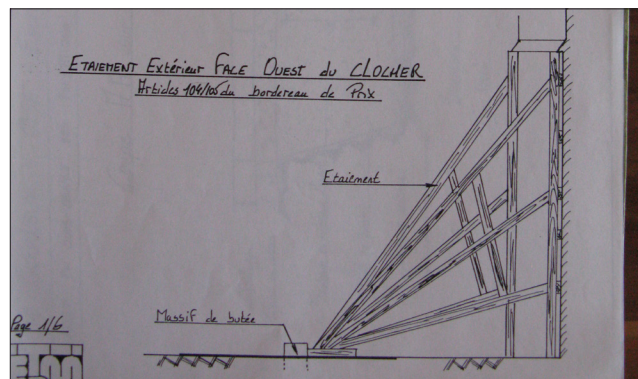 ETAIEMENT Extérieur FACE OUEST du CLOCHER
Articles 104/105 du bordereau de Prix
Etaiement
Massif de butée
Page 1/6